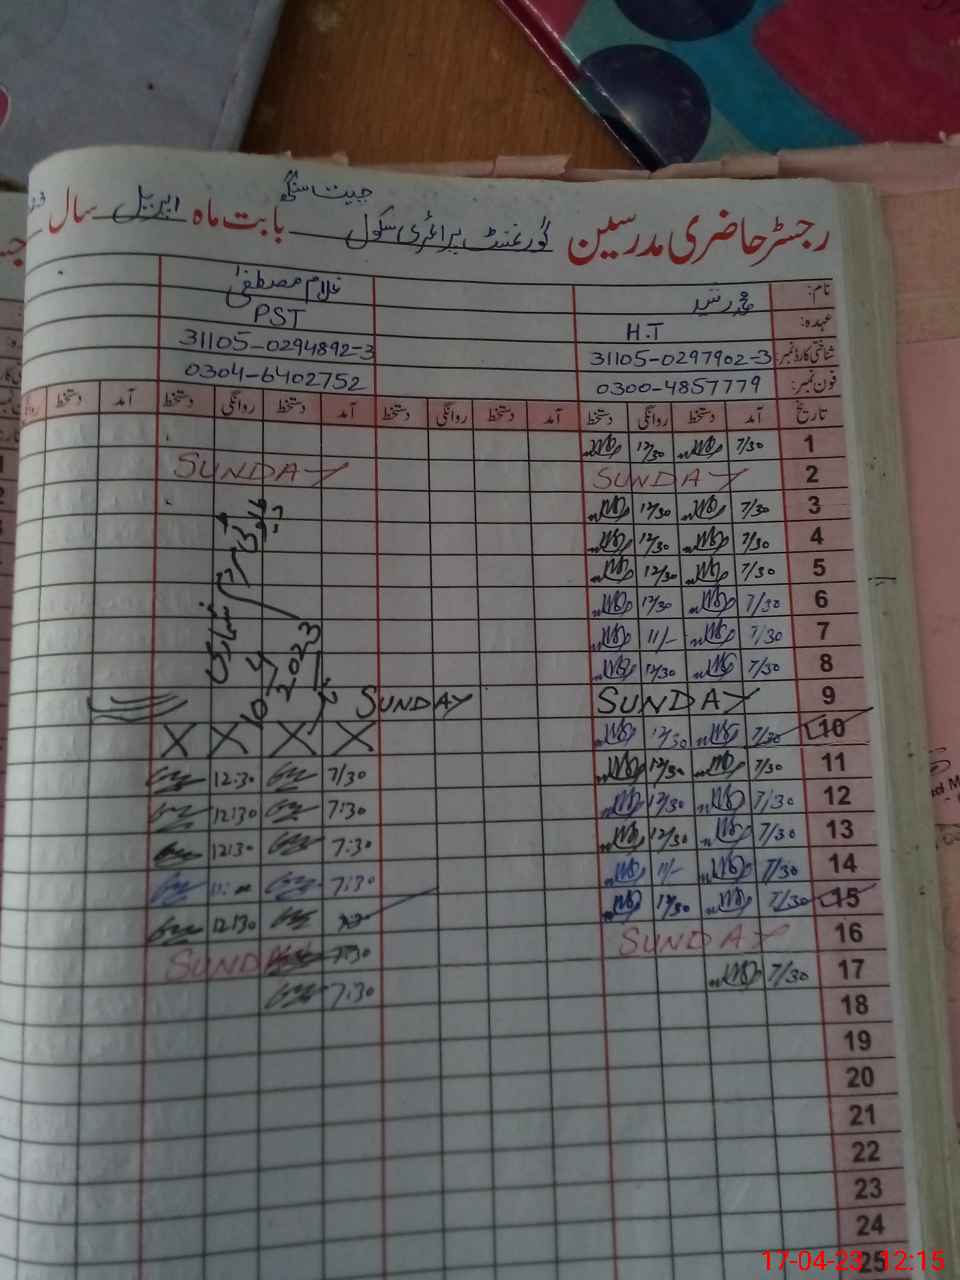 جیت سنگھ
رجسٹر حاضری مدرسین گورنمنٹ پرائمری سکول بابت ماہ اپریل سال
نام: محمد رشید غلام مصطفیٰ
عہدہ: H.T PST
شناختی کارڈ نمبر: 31105-0297902-3 31105-0294892-3
فون نمبر: 0300-4857779 0304-6402752
تاریخ آمد دستخط روانگی دستخط آمد دستخط روانگی دستخط آمد دستخط روانگی دستخط آمد دستخط
1 7/30 12/30
2 SUNDAY SUNDAY
3 7/30 12/30
4 7/30 12/30
5 7/30 12/30
6 7/30 12/30
7 7/30 11/-
8 7/30 12/30
9 SUNDAY SUNDAY
10 7/30 12/30 X X X X
11 7/30 12/30 7/30 12:30
12 7/30 12/30 7:30 12:30
13 7/30 12/30 7:30 12:30
14 7/30 11/- 7:30
15 7/30 12/30 12:30
16 SUNDAY SUNDAY 7:30
17 7/30 7:30
18
19
20
21
22
23
24
25
17-04-23 12:15